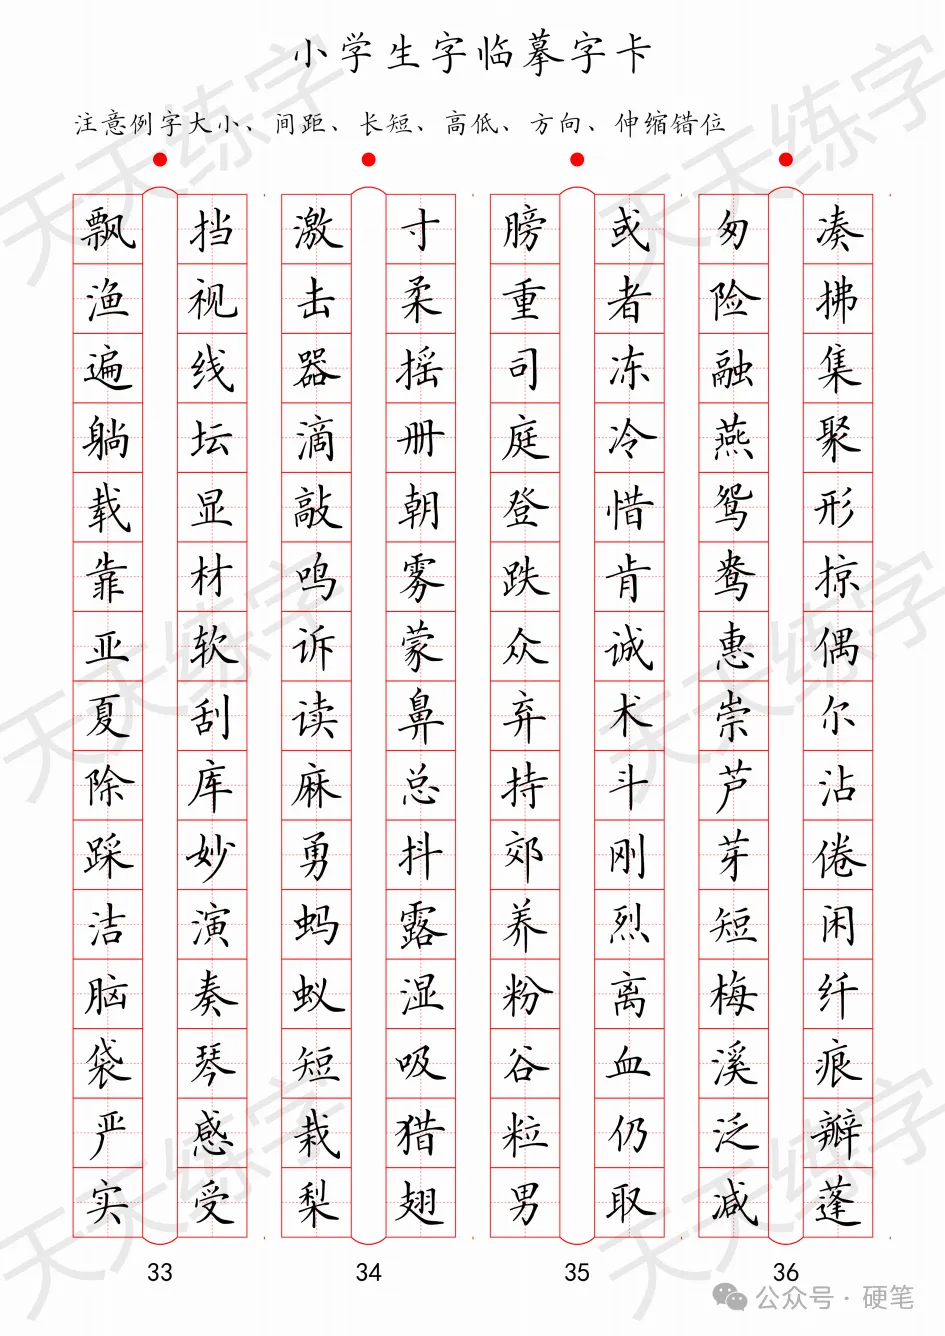 小学生字临摹字卡
注意例字大小、间距、长短、高低、方向、伸缩错位
飘 挡 激 寸 膀 或 匆 凑
渔 视 击 柔 重 者 险 拂
遍 线 器 摇 司 冻 融 集
躺 坛 滴 册 庭 冷 燕 聚
载 显 敲 朝 登 惜 鸳 形
靠 材 鸣 雾 跌 肯 鸯 掠
亚 软 诉 蒙 众 诚 惠 偶
夏 刮 读 鼻 弃 术 崇 尔
除 库 麻 总 持 斗 芦 沾
踩 妙 勇 抖 郊 刚 芽 倦
洁 演 蚂 露 养 烈 短 闲
脑 奏 蚁 湿 粉 离 梅 纤
袋 琴 短 吸 谷 血 溪 痕
严 感 栽 猎 粒 仍 泛 瓣
实 受 梨 翅 男 取 减 蓬
33 34 35 36
公众号·硬笔
天天练字
天天练字
天天练字
天天练字
天天练字
天天练字